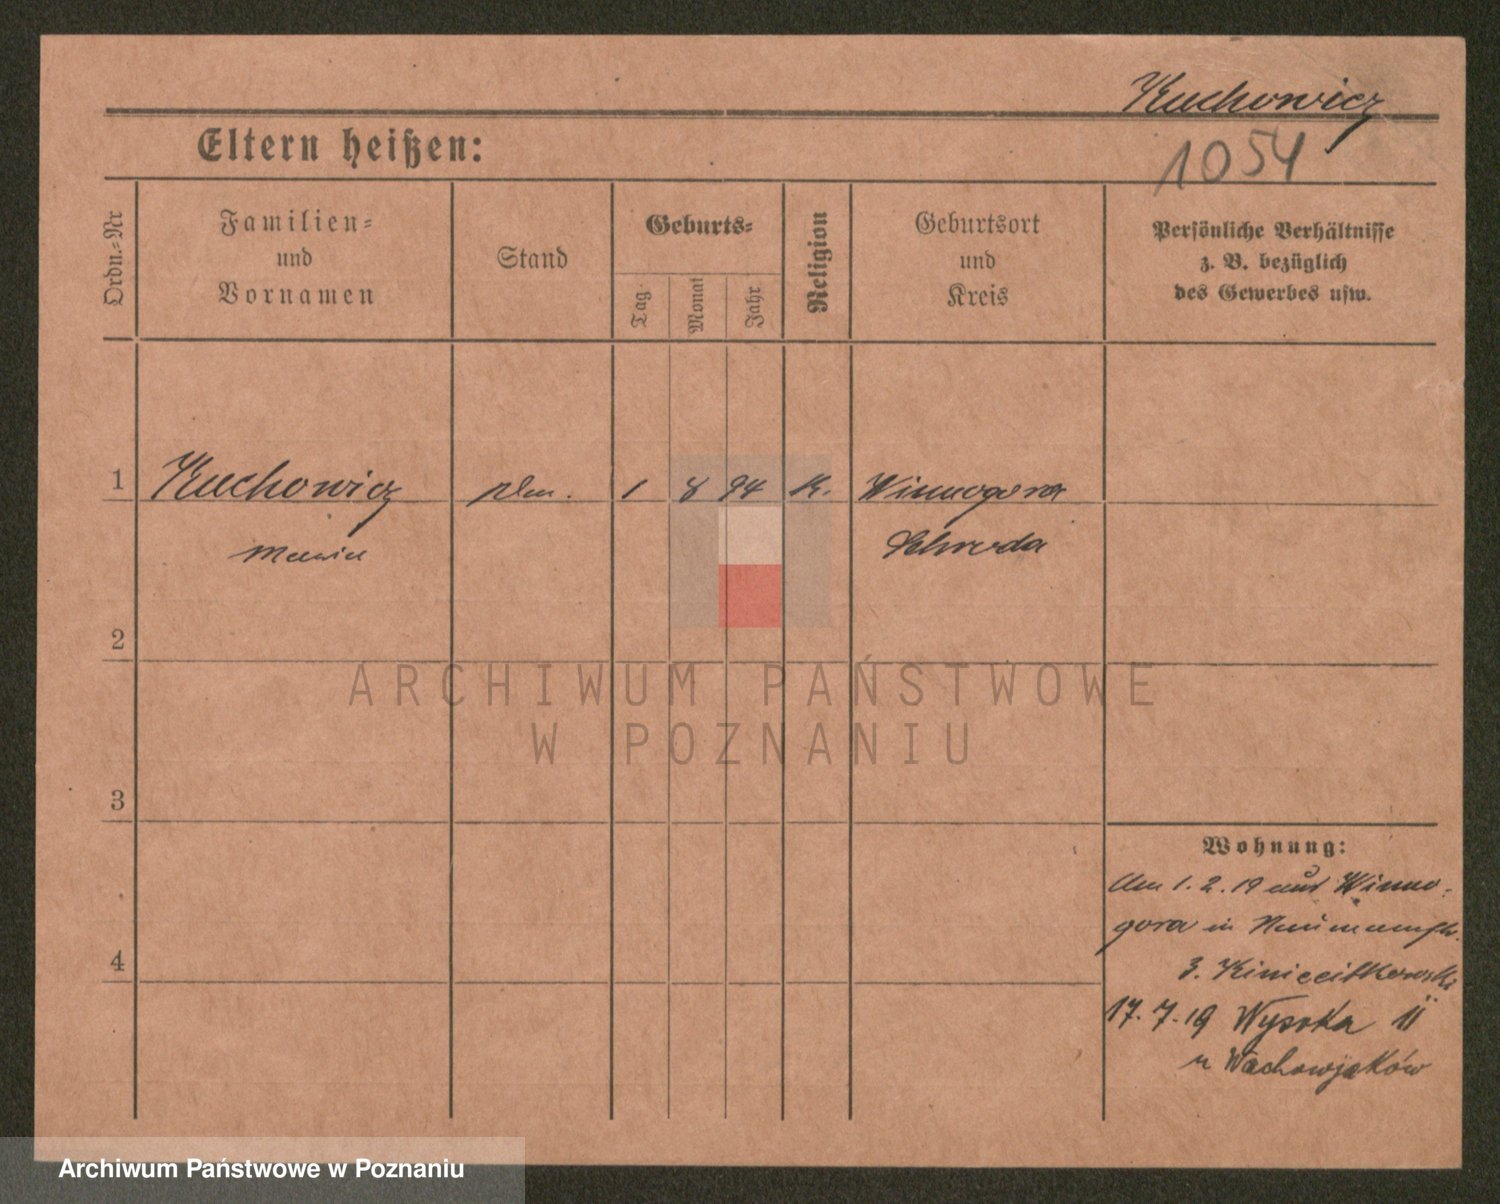 Kuchowicz
Eltern heißen:
1054
Ordn.-Nr
Familien-
und
Vornamen
Stand
Geburts-
Tag
Monat
Jahr
Religion
Geburtsort
und
Kreis
Persönliche Verhältnisse
z. B. bezüglich
des Gewerbes usw.
1
Kuchowicz
1 8 94 K. Winnogora
Schroda
2
3
4
Wohnung:
Am 1. 2. 19 aus Winno-
gora in
3.
17. 7. 19 Wysoka 11
u Wachowjaków
ARCHIWUM PAŃSTWOWE
W POZNANIU
Archiwum Państwowe w Poznaniu